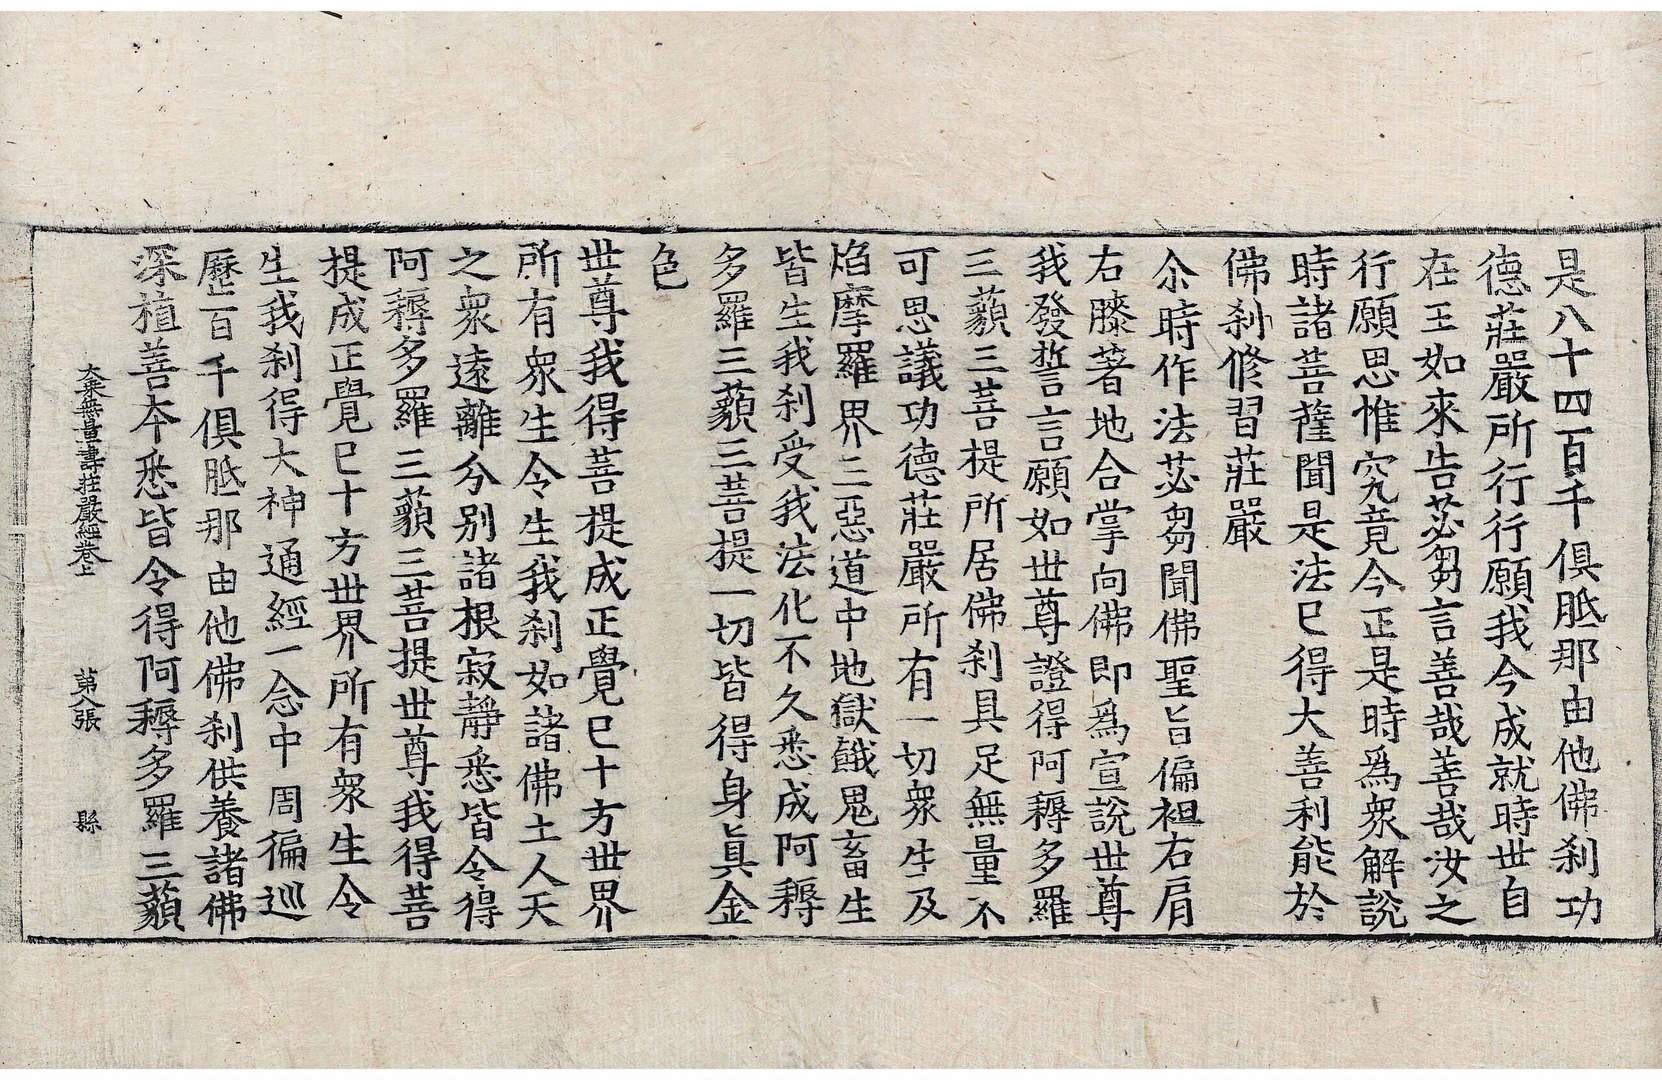 是八十四百千俱胝那由他佛刹功
德莊嚴所行行願我今成就時世自
在王如來告苾芻言善哉善哉汝之
行願思惟究竟今正是時爲衆解說
時諸菩薩聞是法已得大善利能於
佛刹修習莊嚴
尒時作法苾芻聞佛聖旨偏袒右肩
右膝著地合掌向佛即爲宣說世尊
我發誓言願如世尊證得阿耨多羅
三藐三菩提所居佛刹具足無量不
可思議功德莊嚴所有一切衆生及
焰摩羅界三惡道中地獄餓鬼畜生
皆生我刹受我法化不久悉成阿耨
多羅三藐三菩提一切皆得身真金
色
世尊我得菩提成正覺已十方世界
所有衆生令生我刹如諸佛土人天
之衆遠離分別諸根寂靜悉皆令得
阿耨多羅三藐三菩提世尊我得菩
提成正覺已十方世界所有衆生令
生我刹得大神通經一念中周徧巡
歷百千俱胝那由他佛刹供養諸佛
深植善本悉皆令得阿耨多羅三藐
大乘無量壽莊嚴經卷上 第八張 縣